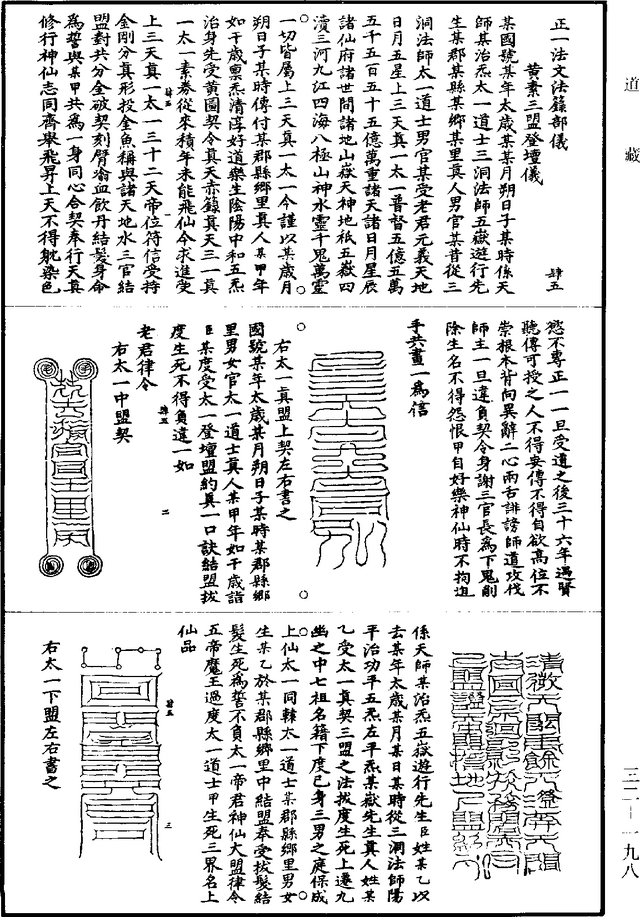 道藏
正一法文法籙部儀
肆五
黃素三盟登壇儀
某國號某年太歲某某月朔日子某時係天
師某治炁太一道士三洞法師五嶽遊行先
生某郡某縣某鄉某里真人男官某昔從三
洞法師太一道士男官某受老君元義天地
日月五星上三天真一太一普督五億五萬
五千五百五十五億萬重諸天諸日月星辰
諸仙府諸世間諸地山嶽天神地祇五嶽四
瀆三河九江四海八極山神水靈千鬼萬靈
一切皆屬上三天真一太一今謹以某歲月
朔日子某時傳付某郡縣鄉里真人某甲年
如干歲禀炁清淳好道樂生陰陽中和五炁
治身先受黃圖契令真天赤籙真天三一真
一太一素奏從來積年未能飛仙今求進受
上三天真一太一三十二天帝位符信受持
金剛分真形投金魚稱與諸天地水三官結
盟對共分金破契刻臂㰱血飲丹結髮身命
為誓與某甲共為一身同心合契奉行天真
修行神仙志同齊舉飛昇上天不得躭染色
慾不專正一一旦受道之後三十六年遇賢
聽傳可授之人不得妄傳不得自欲高位不
崇根本背向異辭二心兩舌誹謗師道攻伐
師主一旦違負契令身謝三官長為下鬼削
除生名不得怨恨甲自好樂神仙時不拘迫
手共畫一為信
右太一真盟上契左右書之
國號某年太歲某月朔日子某時某郡縣鄉
里男女官太一道士真人某甲年如干歲詣
臣某度受太一登壇盟約真一口訣結盟拔
度生死不得負違一如
老君律令
右太一中盟契
係天師某治炁五嶽遊行先生臣姓某乙以
去某年太歲某月某日某時從三洞法師陽
平治功平五炁左平炁某嶽先生真人姓某
乙受太一真契三盟之法拔度生死上遷九
幽之中七祖名籍下度已身三男之庭保成
上仙太一同契太一道士某郡縣鄉里男女
生某乙於某郡縣鄉里中結盟奉受拔髮結
髮生死為誓不負太一帝君神仙大盟律令
五帝魔王過度太一道士甲生死三界名上
仙品
右太一下盟左右書之
三二—一九八